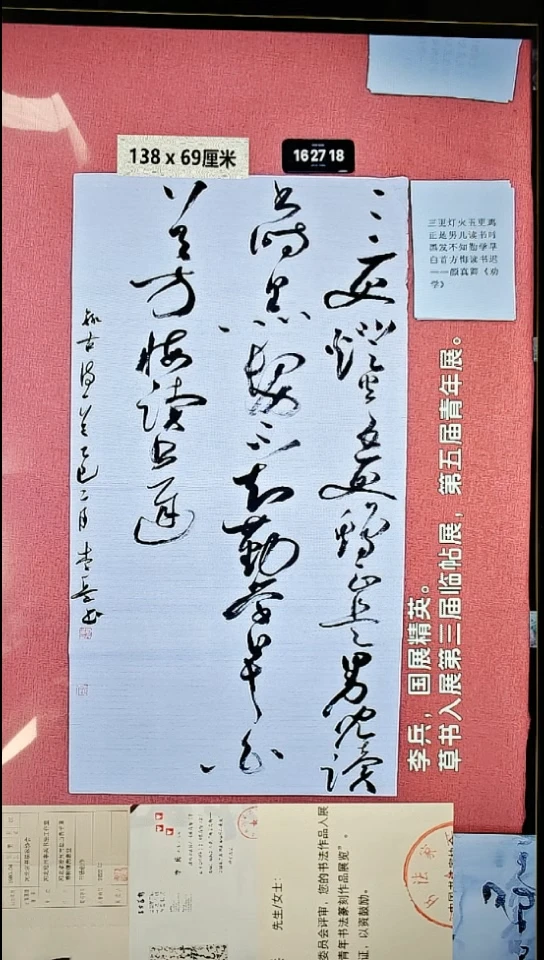 138 x 69厘米
16 27 18
三更燈火五更鷄正是男兒讀
書時黑髮不知勤學早白
首方悔讀書遲
乙巳二月李兵書
三更灯火五更鸡
正是男儿读书时
黑发不知勤学早
白首方悔读书迟
——颜真卿《劝
学》
李兵，国展精英。
草书入展第三届临帖展，第五届青年展。
先生/女士：
委员会评审，您的书法作品入展
青年书法篆刻作品展览”。
证，以资鼓励。